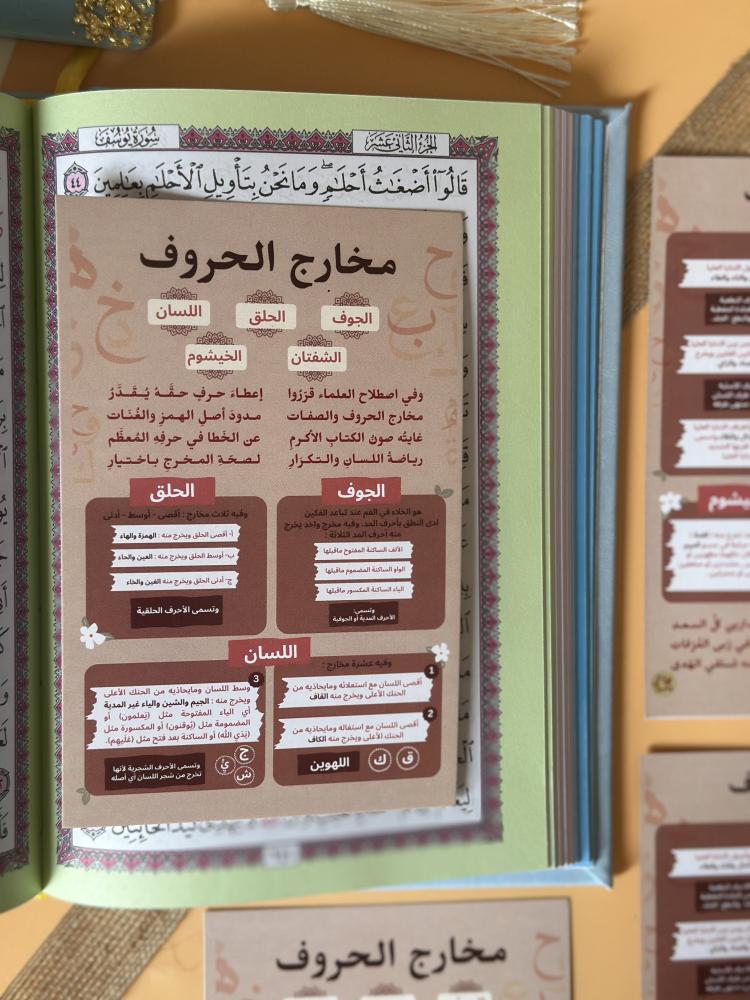 الجزء الثاني عشر
سورة يوسف
قَالُوٓا۟ أَضْغَـٰثُ أَحْلَـٰمٍ ۖ وَمَا نَحْنُ بِتَأْوِيلِ ٱلْأَحْلَـٰمِ بِعَـٰلِمِينَ ٤٤
مخارج الحروف
الجوف
الحلق
اللسان
الشفتان
الخيشوم
وفي اصطلاح العلماء قرَرُوا إعطاءَ حرفٍ حقَّـهُ يُـقَـدَّرُ
مخارج الحروف والصفات مـدودَ أصلِ الهـمزِ والغُنَـات
غايتُه صونُ الكتابِ الأكرمِ عن الخَطا في حرفِهِ المُعظَّم
رياضةُ اللسانِ والتـكـرَارِ لـصحّةِ المـخرجِ بـاخـتـيارِ
الجوف
هو الخلاء في الفم عند تباعد الفكين
لدى النطق بأحرف المد. وفيه مخرج واحد يخرج
منه أحرف المد الثلاثة :
الألف الساكنة المفتوح ماقبلها
الواو الساكنة المضموم ماقبلها
الياء الساكنة المكسور ماقبلها
وتسمى:
الأحرف المدية أو الجوفية
الحلق
وفيه ثلاث مخارج : أقصى - أوسط - أدنى
أ- أقصى الحلق ويخرج منه : الهمزة والهاء
ب- أوسط الحلق ويخرج منه : العين والحاء
ج- أدنى الحلق ويخرج منه الغين والخاء
وتسمى الأحرف الحلقية
اللسان
وفيه عشرة مخارج :
1
أقصى اللسان مع استعلائه ومايحاذيه من
الحنك الأعلى ويخرج منه القاف
2
أقصى اللسان مع استفاله ومايحاذيه من
الحنك الأعلى ويخرج منه الكاف
ق
ك
اللهوين
3
وسط اللسان ومايحاذيه من الحنك الأعلى
ويخرج منه : الجيم والشين والياء غير المدية
أي الياء المفتوحة مثل (يَعلمون) أو
المضمومة مثل (يُوقنون) أو المكسورة مثل
(يَدَيِ الله) أو الساكنة بعد فتح مثل (عَلَيهم).
ج
ش
يْ
وتسمى الأحرف الشجرية لأنها
تخرج من شجر اللسان أي أصله
مخارج الحروف